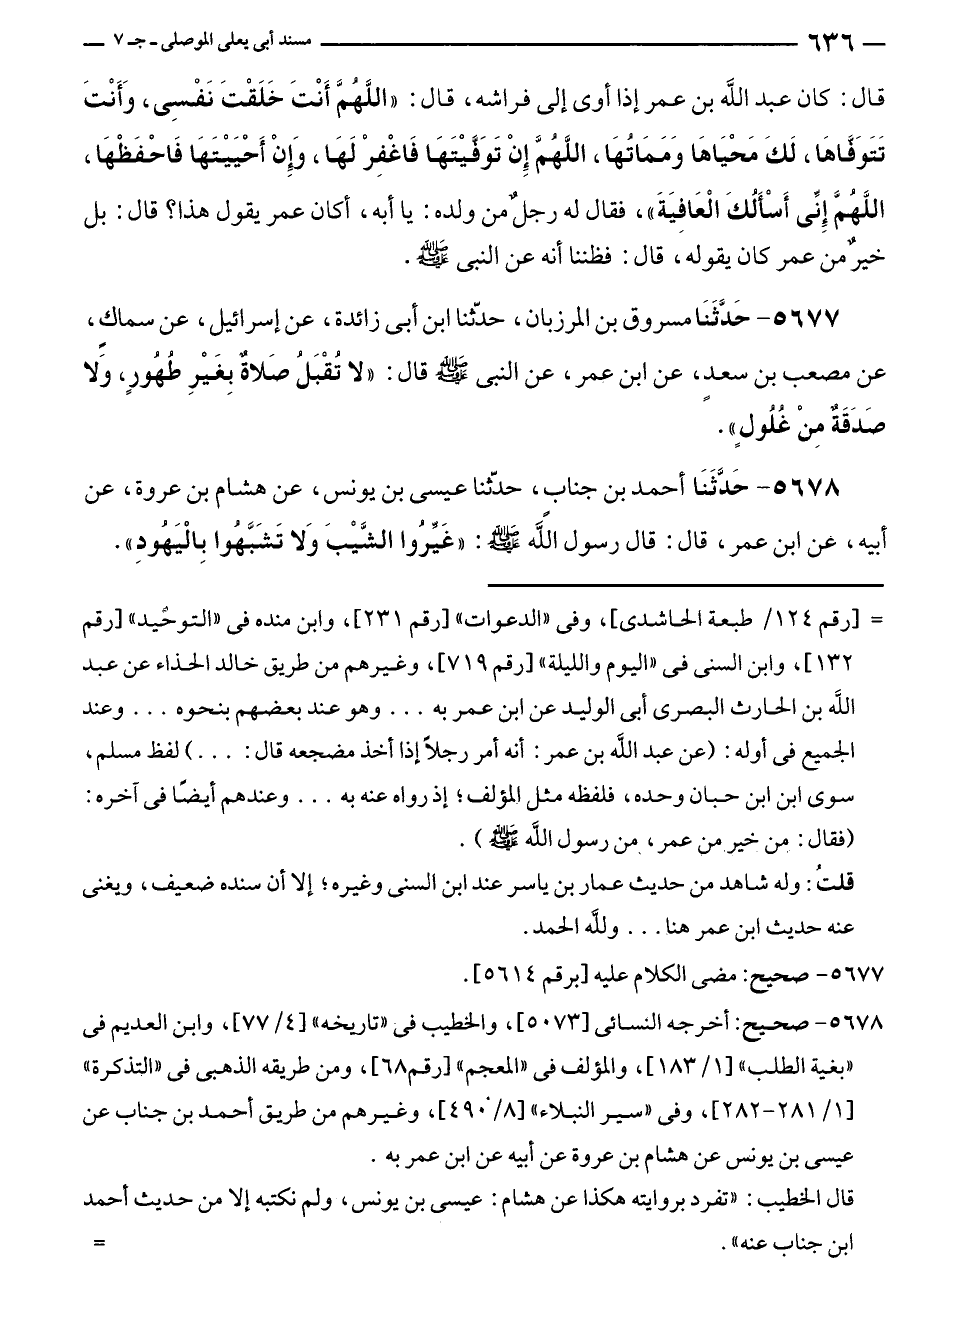 ٦٣٦ مسند أبى يعلى الموصلى - جـ ٧
قال: كان عبد اللَّه بن عمر إذا أوى إلى فراشه، قال: «اللَّهُمَّ أَنْتَ خَلَقْتَ نَفْسِى، وَأَنْتَ
تَتَوَفَّاهَا، لَكَ مَحْيَاهَا وَمَمَاتُهَا، اللَّهُمَّ إِنْ تَوَفَّيْتَهَا فَاغْفِرْ لَهَا، وَإِنْ أَحْيَيْتَهَا فَاحْفَظْهَا،
اللَّهُمَّ إِنِّى أَسْأَلُكَ الْعَافِيَةَ»، فقال له رجلٌ من ولده: يا أبه، أكان عمر يقول هذا؟ قال: بل
خيرٌ من عمر كان يقوله، قال: فظننا أنه عن النبى ﷺ.
٥٦٧٧- حَدَّثَنَا مسروق بن المرزبان، حدّثنا ابن أبى زائدة، عن إسرائيل، عن سماكٍ،
عن مصعب بن سعدٍ، عن ابن عمر، عن النبى ﷺ قال: «لا تُقْبَلُ صَلاةٌ بِغَيْرِ طُهُورٍ، وَلا
صَدَقَةٌ مِنْ غُلُولٍ».
٥٦٧٨- حَدَّثَنَا أحمد بن جنابٍ، حدّثنا عيسى بن يونس، عن هشام بن عروة، عن
أبيه، عن ابن عمر، قال: قال رسول اللَّه ﷺ: «غَيِّرُوا الشَّيْبَ وَلا تَشَبَّهُوا بِالْيَهُودِ».
= [رقم ١٢٤/ طبعة الحاشدى]، وفى «الدعوات» [رقم ٢٣١]، وابن منده فى «التوحيد» [رقم
١٣٢]، وابن السنى فى «اليوم والليلة» [رقم ٧١٩]، وغيرهم من طريق خالد الحذاء عن عبد
اللَّه بن الحارث البصرى أبى الوليد عن ابن عمر به ... وهو عند بعضهم بنحوه ... وعند
الجميع فى أوله: (عن عبد اللَّه بن عمر: أنه أمر رجلاً إذا أخذ مضجعه قال: ...) لفظ مسلم،
سوى ابن ابن حبان وحده، فلفظه مثل المؤلف؛ إذ رواه عنه به ... وعندهم أيضًا فى آخره:
(فقال: من خير من عمر، من رسول اللَّه ﷺ).
قلتُ: وله شاهد من حديث عمار بن ياسر عند ابن السنى وغيره؛ إلا أن سنده ضعيف، ويغنى
عنه حديث ابن عمر هنا... وللَّه الحمد.
٥٦٧٧- صحيح: مضى الكلام عليه [برقم ٥٦١٤].
٥٦٧٨- صحيح: أخرجه النسائى [٥٠٧٣]، والخطيب فى «تاريخه» [٤/ ٧٧]، وابن العديم فى
«بغية الطلب» [١/ ١٨٣]، والمؤلف فى «المعجم» [رقم٦٨]، ومن طريقه الذهبى فى «التذكرة»
[١/ ٢٨١-٢٨٢]، وفى «سير النبلاء» [٨/ ٤٩٠]، وغيرهم من طريق أحمد بن جناب عن
عيسى بن يونس عن هشام بن عروة عن أبيه عن ابن عمر به.
قال الخطيب: «تفرد بروايته هكذا عن هشام: عيسى بن يونس، ولم نكتبه إلا من حديث أحمد
ابن جناب عنه». =